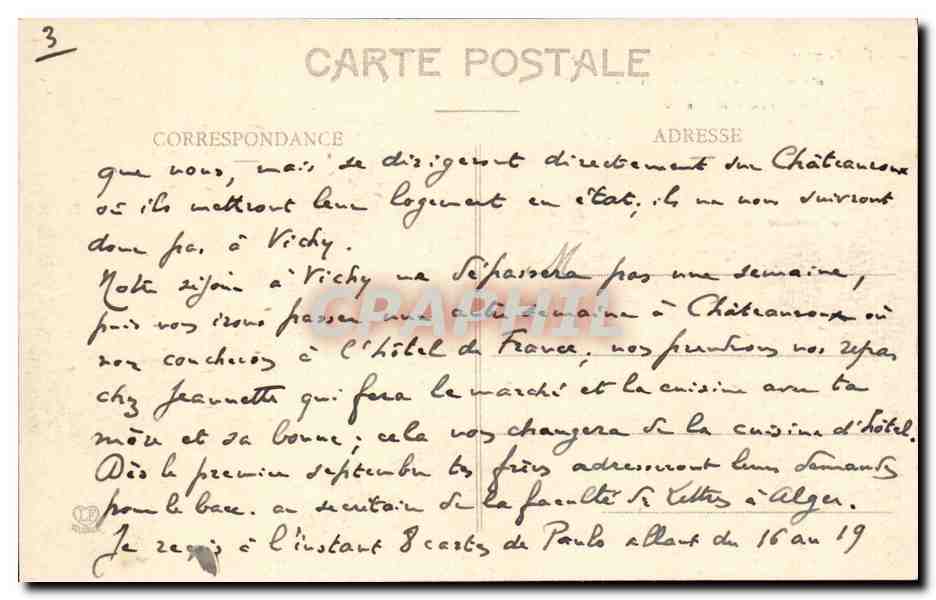 3
CARTE POSTALE
CORRESPONDANCE
ADRESSE
que nous, mais se dirigeront directement sur Châteauroux
où ils mettront leur logement en état; ils ne nous suivront
donc pas à Vichy.
Notre séjour à Vichy ne dépassera pas une semaine,
puis nous irons passer une autre semaine à Châteauroux où
nous coucherons à l'hôtel de France; nous prendrons nos repas
chez Jeannette qui fera le marché et la cuisine avec ta
mère et sa bonne; cela nous changera de la cuisine d'hôtel.
Dès le premier septembre tes frères adresseront leurs demandes
pour le bacc. au secrétaire de la faculté de Lettres à Alger.
Je reçois à l'instant 8 cartes de Paulo allant du 16 au 19
CPAPHIL